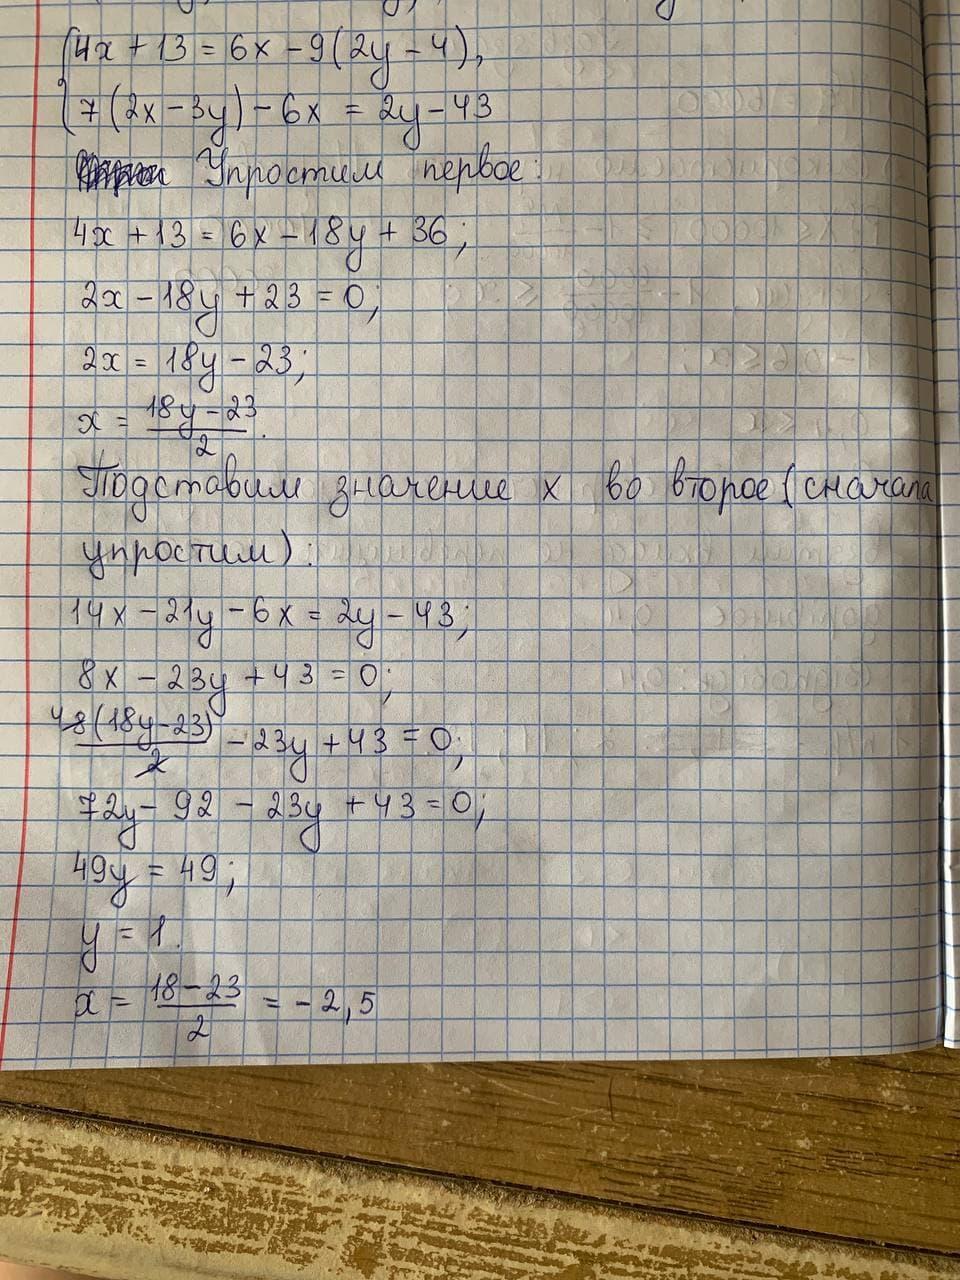 {4x + 13 = 6x - 9(2y - 4),
{7(2x - 3y) - 6x = 2y - 43
Упростим первое:
4x + 13 = 6x - 18y + 36;
2x - 18y + 23 = 0;
2x = 18y - 23;
x = (18y - 23)/2.
Подставим значение x во второе (сначала
упростим):
14x - 21y - 6x = 2y - 43;
8x - 23y + 43 = 0;
4 8(18y - 23)/2 - 23y + 43 = 0;
72y - 92 - 23y + 43 = 0;
49y = 49;
y = 1.
x = (18 - 23)/2 = -2,5